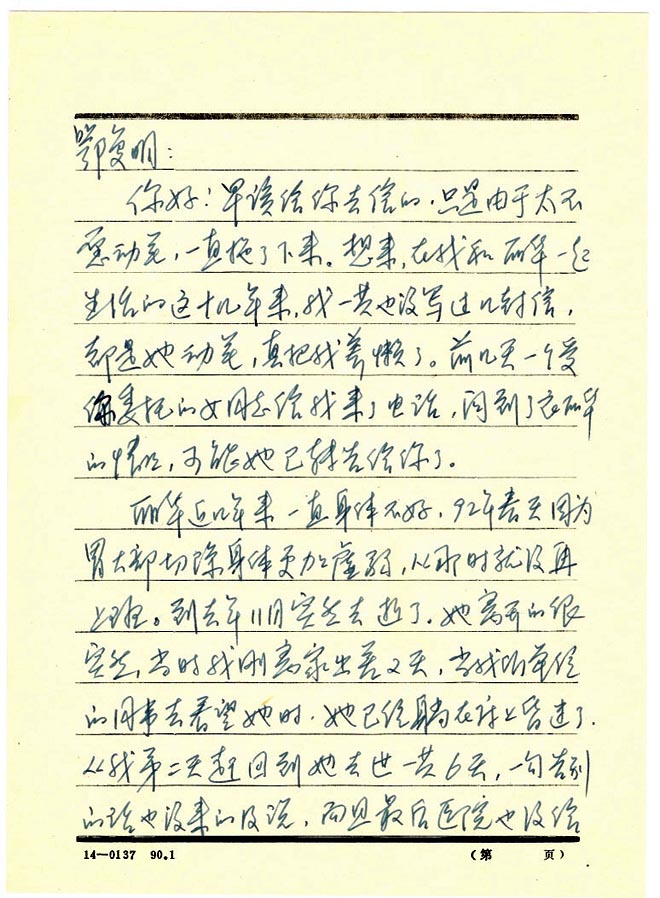 鄂复明：
你好！早该给你去信的，只是由于太不
愿动笔，一直拖了下来。想来，在我和丽华一起
生活的这十几年来，我一共也没写过几封信，
都是她动笔，真把我养懒了。前几天一个受
你委托的女同志给我来了电话，问到了丽华
的情况，可能她已转告给你了。
丽华近几年来一直身体不好，92年春天因为
胃大部切除身体更加虚弱，从那时就没再
上班。到去年11月突然去逝了。她离开的很
突然，当时我刚离家出差2天，当我们单位
的同事去看望她时，她已经躺在床上昏迷了。
从我第二天赶回到她去世一共6天，一句告别
的话也没来的及说，而且最后医院也没给
14—0137 90.1
（第 页）